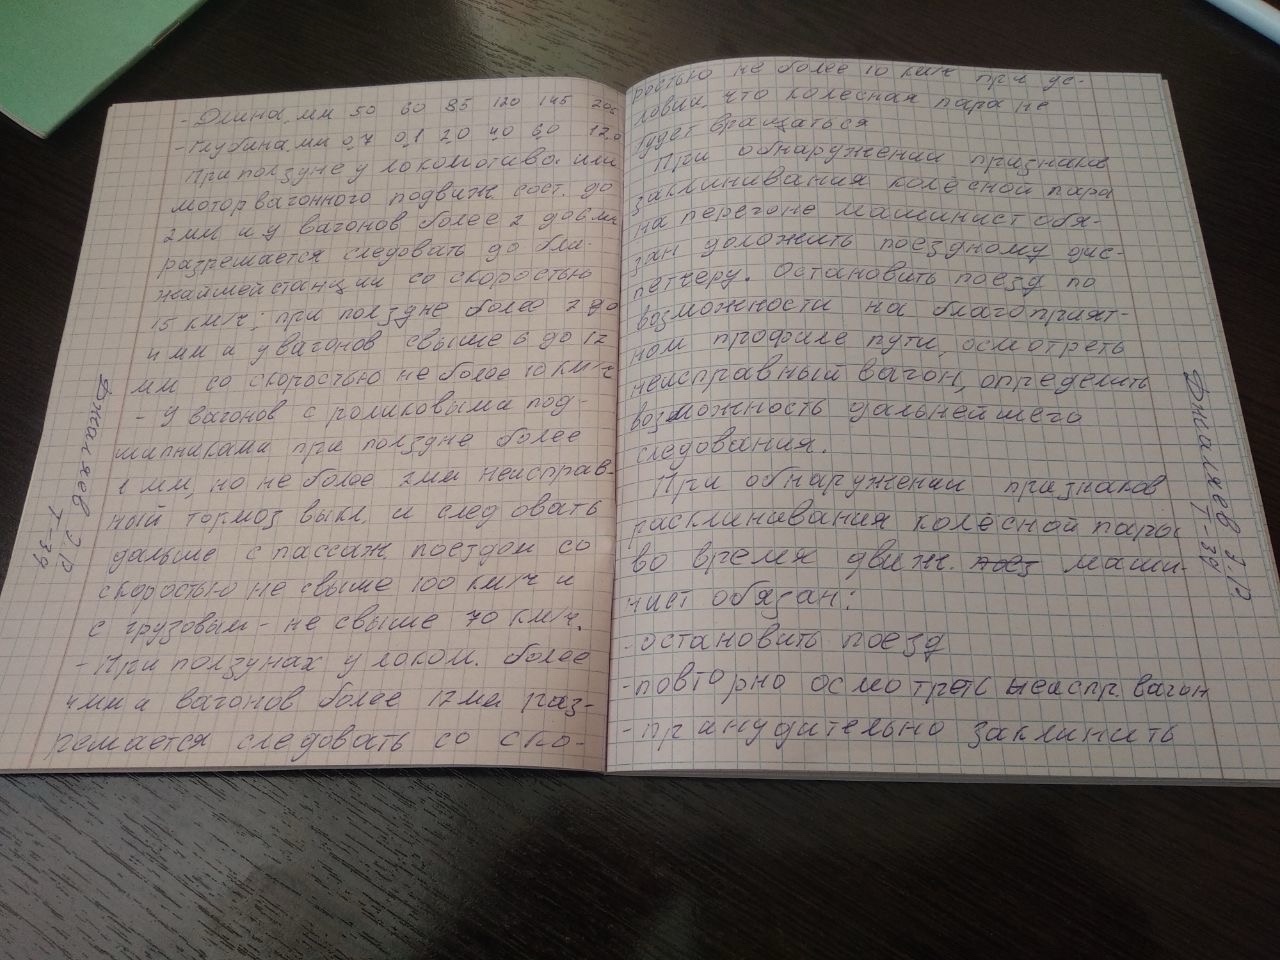 - Длина, мм 50 60 85 120 145 205
- Глубина мм 0,7 0,1 2,0 4,0 6,0 12,0
При ползуне у локомотива или
моторвагонного подвиж. сост. до
2мм и у вагонов более 2 до 6 мм
разрешается следовать до бли-
жайшей станции со скоростью
15 км/ч; при ползуне более 2 до
4 мм и у вагонов свыше 6 до 12
мм со скоростью не более 10 км/ч
- У вагонов с роликовыми под-
шипниками при ползуне более
1 мм, но не более 2мм неисправ-
ный тормоз выкл. и следовать
дальше с пассаж. поездом со
скоростью не свыше 100 км/ч и
с грузовым - не свыше 70 км/ч.
- При ползунах у локом. более
4мм и вагонов более 12мм раз-
решается следовать со ско-
Т-39
ростью не более 10 км/ч при ус-
ловии, что колесная пара не
будет вращаться
При обнаружении признаков
заклинивания колёсной пары
на перегоне машинист обя-
зан доложить поездному дис-
петчеру. Остановить поезд по
возможности на благоприят-
ном профиле пути, осмотреть
неисправный вагон, определить
возможность дальнейшего
следования.
При обнаружении признаков
расклинивания колёсной пары
во время движ. поез маши-
нист обязан:
- остановить поезд
- повторно осмотреть неиспр. вагон
- принудительно заклинить
Т-39